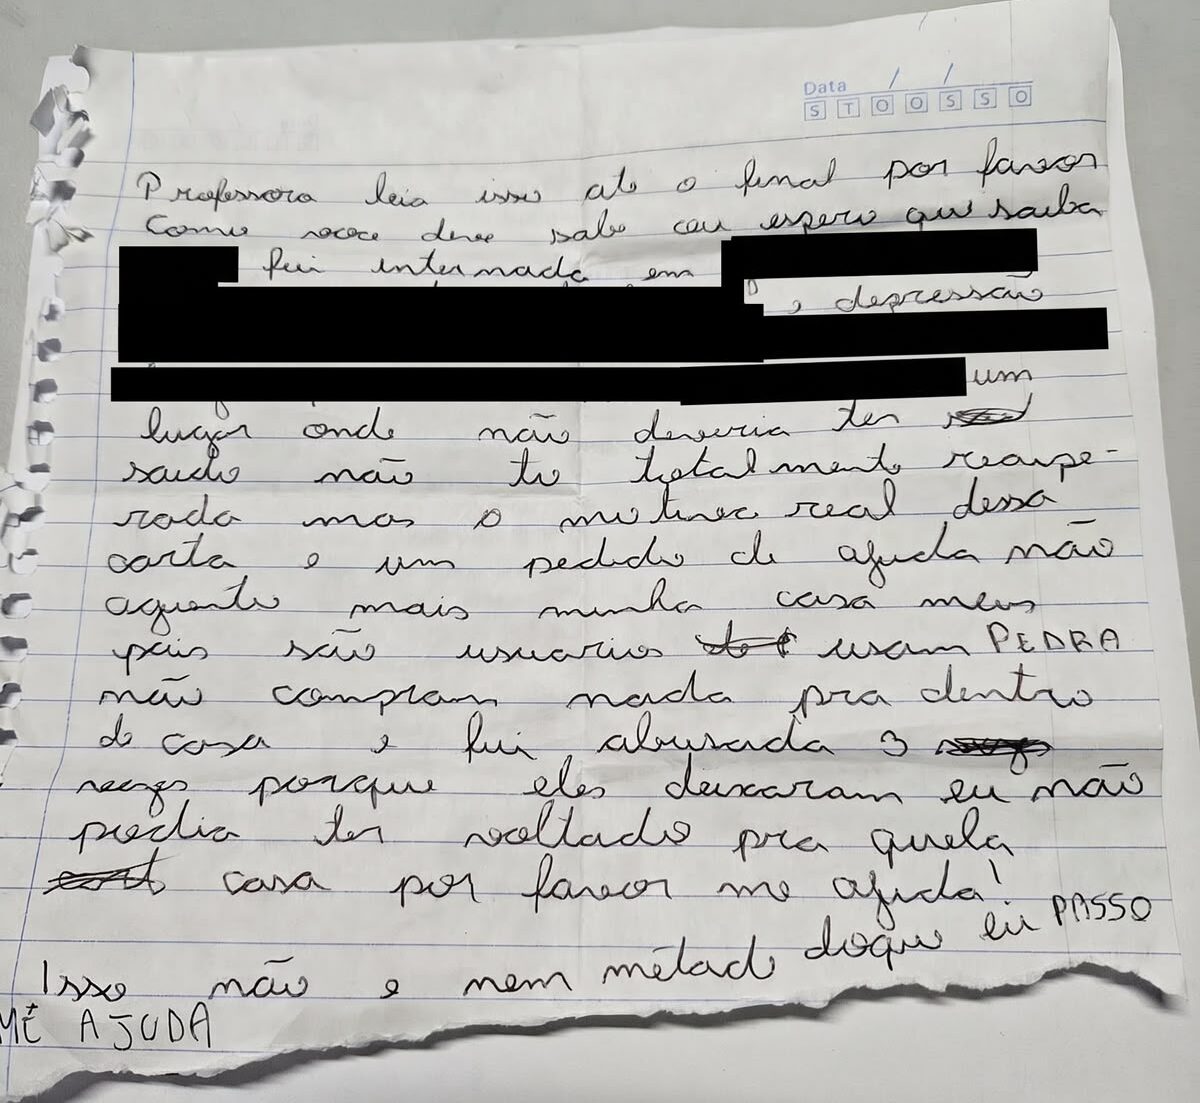 Data / /
S T Q Q S S D
Professora leia isso ate o final por favor
Como voce deve sabe eu espero que saiba
fui internada em
, depressão
um
lugar onde não deveria ter
saido não to totalmente recupe-
rada mas o motivo real dessa
carta e um pedido de ajuda não
aguento mais minha casa meus
pais são usuarios usam PEDRA
não compram nada pra dentro
de casa e fui abusada 3
vezes porque eles deixaram eu não
podia ter voltado pra quela
casa por favor me ajuda!
Isso não e nem metade doque eu PASSO
ME AJUDA